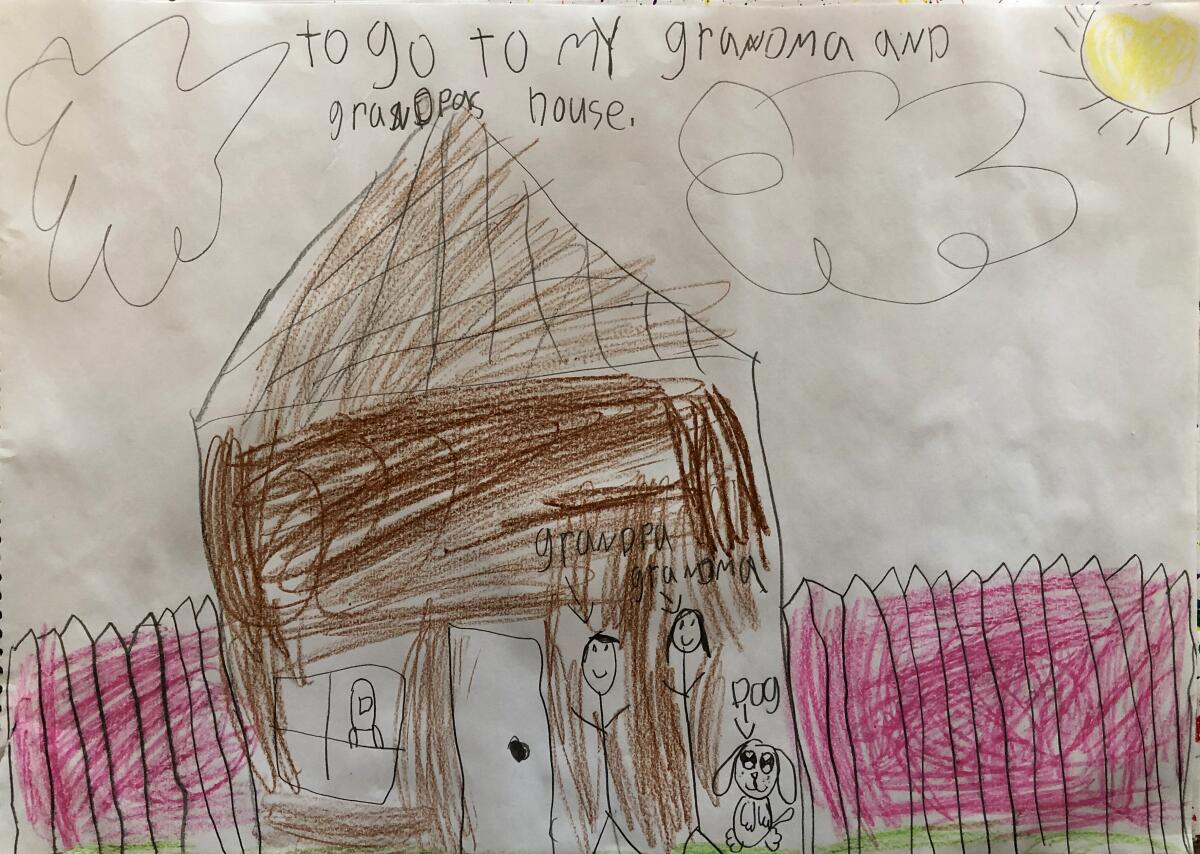 to go to my grandma and
grandpas house.
grandpa
grandma
Dog
D